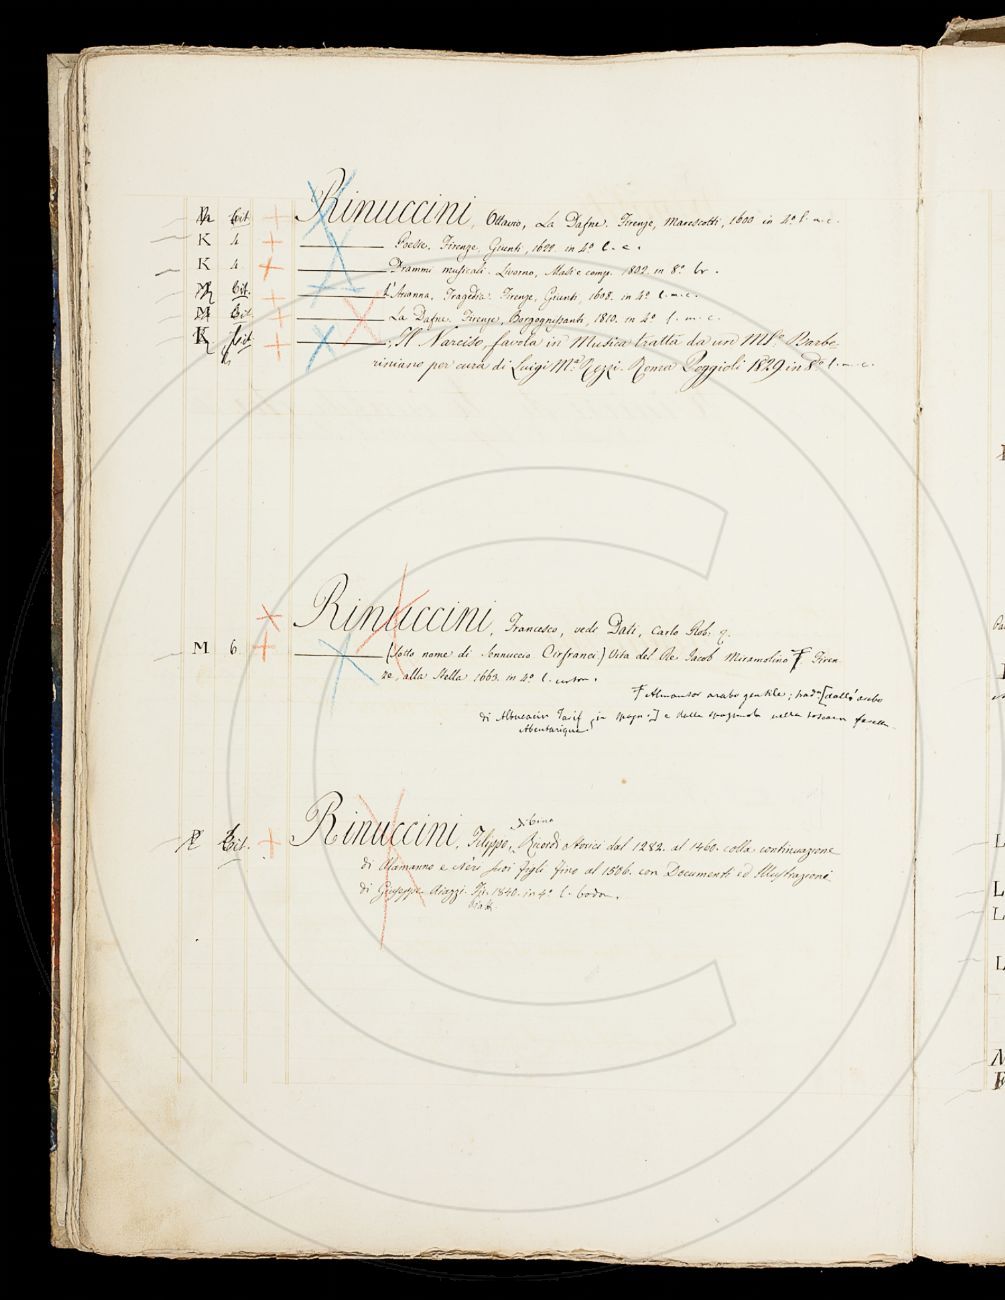 Rinuccini, Ottavio, La Dafne. Firenze, Marescotti, 1600 in 4º l. m. c.
K 4 Poesie. Firenze, Giunti, 1622 in 4º l. c.
K 4 Drammi musicali. Livorno, Masi e comp. 1802 in 8º br.
L'Arianna, Tragedia. Firenze, Giunti, 1608. in 4º l. m. c.
M bit. La Dafne. Firenze, 1810. in 4º l. m. c.
K bit Il Narciso, favola in Musica tratta da un MSº Barbe
riniano per cura di Luigi Mª Rezzi. Roma Poggioli 1829 in 8º l. m. c.
Rinuccini, Francesco, vede Dati, Carlo Rob.
M 6 (sotto nome di Cirfranci) Vita del Re Jacob Miramolino Firen
ze, alla Stella 1663. in 4º l.
Almansor arabo gentile; trad. [dall'arabo
di Abulcacim Tarif in spagn.] e dalla spagnola nella toscana favella
Abentarique
Rinuccini, Filippo, Ricordi storici dal 1282. al 1460. colla continuazione
di Alamanno e Neri suoi figli fino al 1506. con Documenti ed Illustrazioni
di Giuseppe Aiazzi. Fir. 1840. in 4º l. bodon.